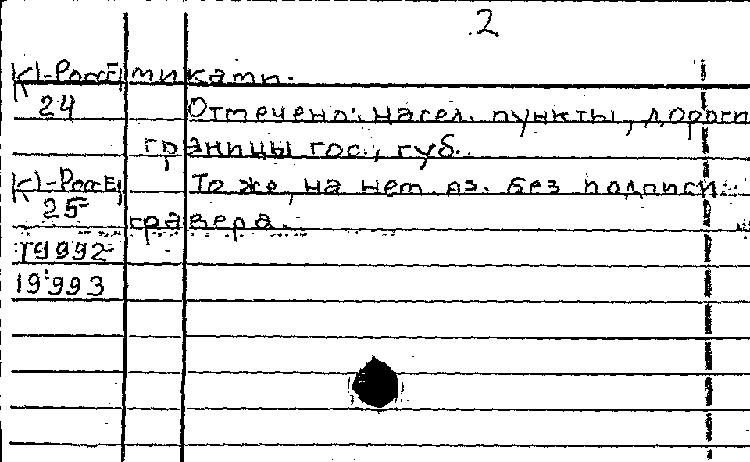 2
К)-РоссЕ тиками.
24 Отмечено: насел. пункты, дороги
границы гос., губ.
К)-РоссЕ То же, на нет. яз. без подписи
25 гравера.
19992
19993